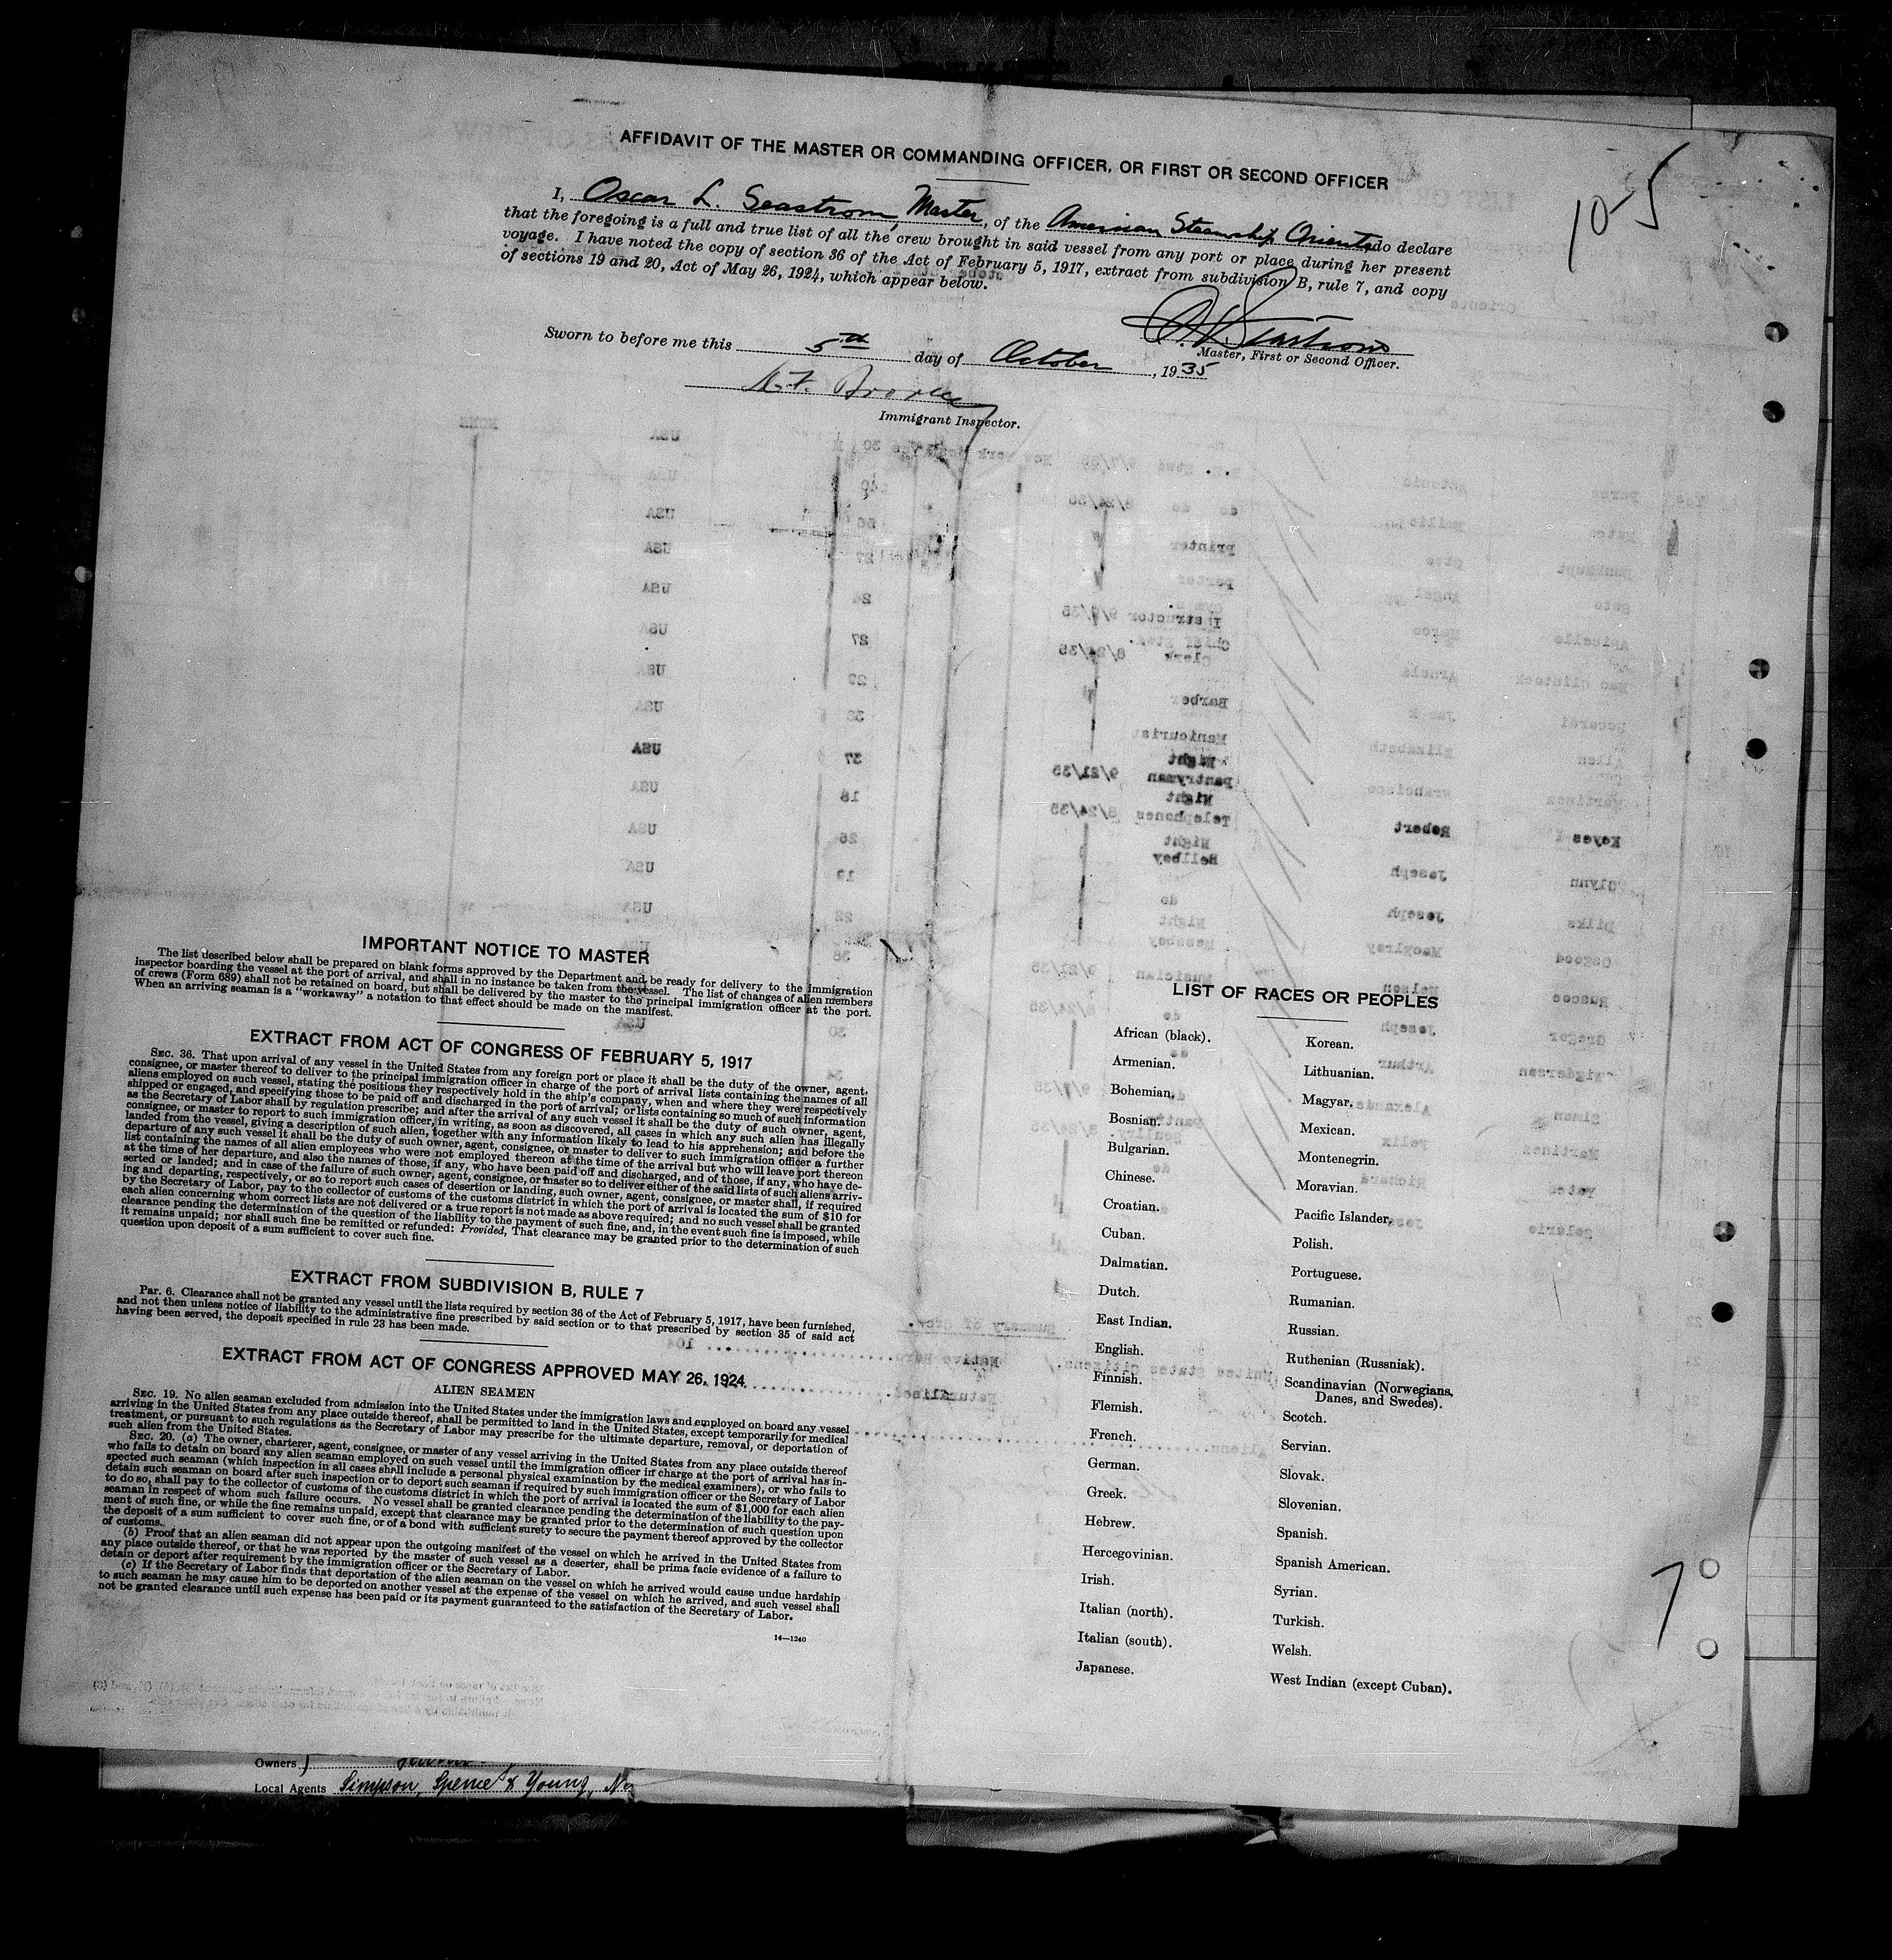 AFFIDAVIT OF THE MASTER OR COMMANDING OFFICER, OR FIRST OR SECOND OFFICER
10-5
I, Oscar L. Seastrom, Master, of the American Steamship Oriente, do declare
that the foregoing is a full and true list of all the crew brought in said vessel from any port or place during her present
voyage. I have noted the copy of section 36 of the Act of February 5, 1917, extract from subdivision B, rule 7, and copy
of sections 19 and 20, Act of May 26, 1924, which appear below.
Master, First or Second Officer.
Sworn to before me this 5th day of October, 1935
Immigrant Inspector.
IMPORTANT NOTICE TO MASTER
The list described below shall be prepared on blank forms approved by the Department and be ready for delivery to the immigration
inspector boarding the vessel at the port of arrival, and shall in no instance be taken from the vessel. The list of changes of alien members
of crews (Form 689) shall not be retained on board, but shall be delivered by the master to the principal immigration officer at the port.
When an arriving seaman is a "workaway" a notation to that effect should be made on the manifest.
EXTRACT FROM ACT OF CONGRESS OF FEBRUARY 5, 1917
SEC. 36. That upon arrival of any vessel in the United States from any foreign port or place it shall be the duty of the owner, agent,
consignee, or master thereof to deliver to the principal immigration officer in charge of the port of arrival lists containing the names of all
aliens employed on such vessel, stating the positions they respectively hold in the ship's company, when and where they were respectively
shipped or engaged, and specifying those to be paid off and discharged in the port of arrival; or lists containing so much of such information
as the Secretary of Labor shall by regulation prescribe; and after the arrival of any such vessel it shall be the duty of such owner, agent,
consignee, or master to report to such immigration officer, in writing, as soon as discovered, all cases in which any such alien has illegally
landed from the vessel, giving a description of such alien, together with any information likely to lead to his apprehension; and before the
departure of any such vessel it shall be the duty of such owner, agent, consignee, or master to deliver to such immigration officer a further
list containing the names of all alien employees who were not employed thereon at the time of the arrival but who will leave port thereon
at the time of her departure, and also the names of those, if any, who have been paid off and discharged, and of those, if any, who have de-
serted or landed; and in case of the failure of such owner, agent, consignee, or master so to deliver either of the said lists of such aliens arriv-
ing and departing, respectively, or so to report such cases of desertion or landing, such owner, agent, consignee, or master shall, if required
by the Secretary of Labor, pay to the collector of customs of the customs district in which the port of arrival is located the sum of $10 for
each alien concerning whom correct lists are not delivered or a true report is not made as above required; and no such vessel shall be granted
clearance pending the determination of the question of the liability to the payment of such fine, and, in the event such fine is imposed, while
it remains unpaid; nor shall such fine be remitted or refunded: Provided, That clearance may be granted prior to the determination of such
question upon deposit of a sum sufficient to cover such fine.
EXTRACT FROM SUBDIVISION B, RULE 7
Par. 6. Clearance shall not be granted any vessel until the lists required by section 36 of the Act of February 5, 1917, have been furnished,
and not then unless notice of liability to the administrative fine prescribed by said section or to that prescribed by section 35 of said act
having been served, the deposit specified in rule 23 has been made.
EXTRACT FROM ACT OF CONGRESS APPROVED MAY 26, 1924
ALIEN SEAMEN
SEC. 19. No alien seaman excluded from admission into the United States under the immigration laws and employed on board any vessel
arriving in the United States from any place outside thereof, shall be permitted to land in the United States, except temporarily for medical
treatment, or pursuant to such regulations as the Secretary of Labor may prescribe for the ultimate departure, removal, or deportation of
such alien from the United States.
SEC. 20. (a) The owner, charterer, agent, consignee, or master of any vessel arriving in the United States from any place outside thereof
who fails to detain on board any alien seaman employed on such vessel until the immigration officer in charge at the port of arrival has in-
spected such seaman (which inspection in all cases shall include a personal physical examination by the medical examiners), or who fails to
detain such seaman on board after such inspection or to deport such seaman if required by such immigration officer or the Secretary of Labor
to do so, shall pay to the collector of customs of the customs district in which the port of arrival is located the sum of $1,000 for each alien
seaman in respect of whom such failure occurs. No vessel shall be granted clearance pending the determination of the liability to the pay-
ment of such fine, or while the fine remains unpaid, except that clearance may be granted prior to the determination of such question upon
the deposit of a sum sufficient to cover such fine, or of a bond with sufficient surety to secure the payment thereof approved by the collector
of customs.
(b) Proof that an alien seaman did not appear upon the outgoing manifest of the vessel on which he arrived in the United States from
any place outside thereof, or that he was reported by the master of such vessel as a deserter, shall be prima facie evidence of a failure to
detain or deport after requirement by the immigration officer or the Secretary of Labor.
(c) If the Secretary of Labor finds that deportation of the alien seaman on the vessel on which he arrived would cause undue hardship
to such seaman he may cause him to be deported on another vessel at the expense of the vessel on which he arrived, and such vessel shall
not be granted clearance until such expense has been paid or its payment guaranteed to the satisfaction of the Secretary of Labor.
14—1240
LIST OF RACES OR PEOPLES
African (black).
Armenian.
Bohemian.
Bosnian.
Bulgarian.
Chinese.
Croatian.
Cuban.
Dalmatian.
Dutch.
East Indian.
English.
Finnish.
Flemish.
French.
German.
Greek.
Hebrew.
Hercegovinian.
Irish.
Italian (north).
Italian (south).
Japanese.
Korean.
Lithuanian.
Magyar.
Mexican.
Montenegrin.
Moravian.
Pacific Islander.
Polish.
Portuguese.
Rumanian.
Russian.
Ruthenian (Russniak).
Scandinavian (Norwegians,
Danes, and Swedes).
Scotch.
Servian.
Slovak.
Slovenian.
Spanish.
Spanish American.
Syrian.
Turkish.
Welsh.
West Indian (except Cuban).
7
Owners
Local Agents Simpson, Spence & Young,